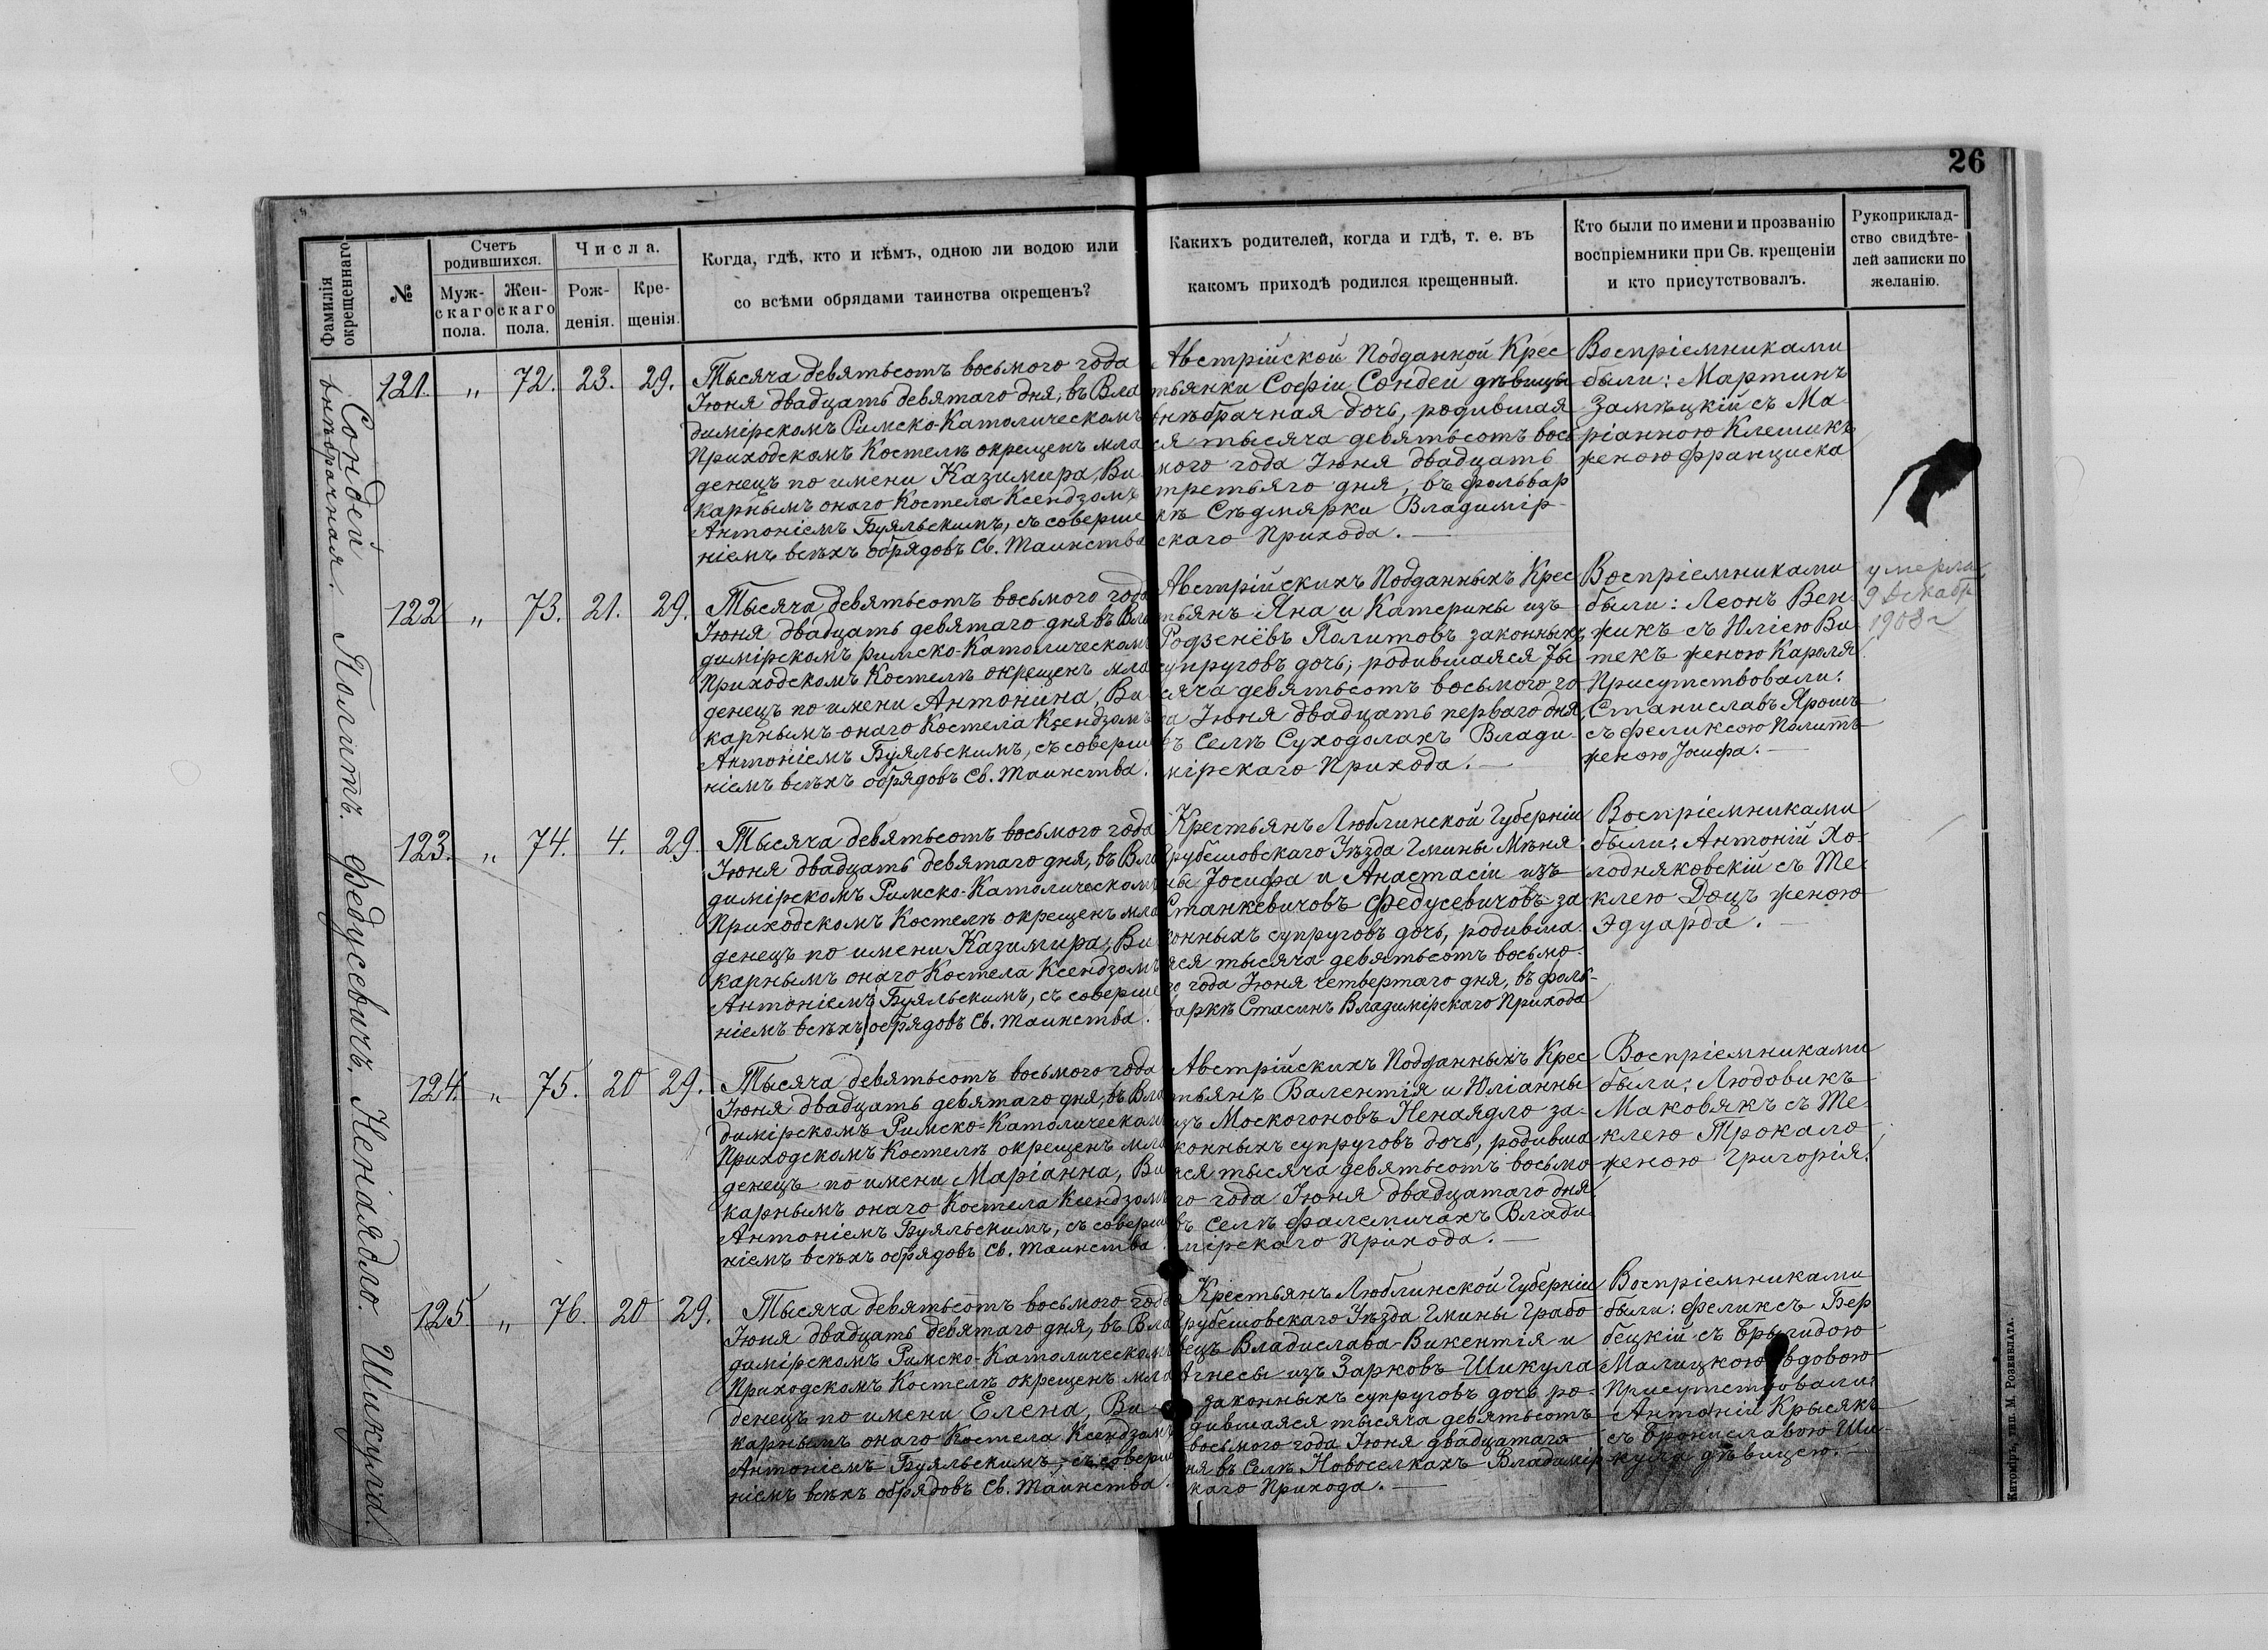 26
Фамилія окрещеннаго
№
Счетъ родившихся.
Муж-
скаго
пола.
Жен-
скаго
пола.
Числа.
Рож-
денія.
Кре-
щенія.
Когда, гдѣ, кто и кѣмъ, одною ли водою или
со всѣми обрядами таинства окрещенъ?
Какихъ родителей, когда и гдѣ, т. е. въ
какомъ приходѣ родился крещенный.
Кто были по имени и прозванію
воспріемники при Св. крещеніи
и кто присутствовалъ.
Рукоприклад-
ство свидѣте-
лей записки по
желанію.
Сондей
внѣбрачная.
121. " 72. 23. 29.
Тысяча девятьсотъ восьмого года
Іюня двадцать девятаго дня, въ Вла
димірскомъ Римско-Католическомъ
Приходскомъ Костелѣ окрещенъ мла
денецъ по имени Казимира, Ви
карнымъ онаго Костела Ксендзомъ
Антоніемъ Буяльскимъ, съ соверше
ніемъ всѣхъ обрядовъ Св. Таинства
Австрійской Подданной Крес
тьянки Софіи Сондей дѣвицы
внѣбрачная дочь, родившая
ся тысяча девятьсотъ вось
мого года Іюня двадцать
третьяго дня, въ фольвар
кѣ Сѣдмярки Владимір-
скаго Прихода.
Воспріемниками
были: Мартинъ
Замѣцкій съ Ма
ріанною Клешикъ
женою Франциска
Политъ.
122 " 73. 21. 29.
Тысяча девятьсотъ восьмого года
Іюня двадцать девятаго дня въ Вла
димірскомъ Римско-Католическомъ
Приходскомъ Костелѣ окрещенъ мла
денецъ по имени Антонина, Ви
карнымъ онаго Костела Ксендзомъ
Антоніемъ Буяльскимъ, съ соверше
ніемъ всѣхъ обрядовъ Св. Таинства.
Австрійскихъ Подданныхъ Крес
тьянъ Яна и Катерины изъ
Родзенёвъ Палитовъ законныхъ
супруговъ дочь, родившаяся Ты
сяча девятьсотъ восьмого го
да Іюня двадцать перваго дня,
въ Селѣ Суходолахъ Влади-
мірскаго Прихода.
Воспріемниками
были: Леонъ Вен-
жикъ съ Юліею Ви
текъ женою Кароля.
Присутствовали:
Станиславъ Ярошъ
съ Феликсою Политъ
женою Іосифа.
умерла
9 Декабр.
1908 г
Федусевичъ.
123. " 74. 4. 29.
Тысяча девятьсотъ восьмого года
Іюня двадцать девятаго дня, въ Вла
димірскомъ Римско-Католическомъ
Приходскомъ Костелѣ окрещенъ мла
денецъ по имени Казимира, Ви
карнымъ онаго Костела Ксендзомъ
Антоніемъ Буяльскимъ, съ соверше
ніемъ всѣхъ обрядовъ Св. Таинства.
Крестьянъ Люблинской Губерніи
Грубешовскаго Уѣзда Гмины Мѣня
ны Іосифа и Анастасіи изъ
Станкевичовъ Федусевичовъ за
конныхъ супруговъ дочь, родивша
яся тысяча девятьсотъ восьмо-
го года Іюня четвертаго дня, въ фоль-
варкѣ Стасинъ Владимірскаго Прихода
Воспріемниками
были: Антоній Хо-
лодняковскій съ Те
клею Доцъ женою
Эдуарда.
Ненаядло.
124. " 75. 20 29.
Тысяча девятьсотъ восьмого года
Іюня двадцать девятаго дня, въ Вла
димірскомъ Римско-Католическомъ
Приходскомъ Костелѣ окрещенъ мла
денецъ по имени Маріанна, Ви
карнымъ онаго Костела Ксендзомъ
Антоніемъ Буяльскимъ, съ соверше
ніемъ всѣхъ обрядовъ Св. Таинства.
Австрійскихъ Подданныхъ Крес
тьянъ Валентія и Юліанны
изъ Москогоновъ Ненаядло за-
конныхъ супруговъ дочь, родивша
яся тысяча девятьсотъ восьмо
го года Іюня двадцатаго дня
въ Селѣ Фалемичахъ Влади
мірскаго Прихода.
Воспріемниками
были: Людовикъ
Маковякъ съ Те
клею Трокало
женою Григорія.
Шикула.
125. " 76. 20 29.
Тысяча девятьсотъ восьмого года
Іюня двадцать девятаго дня, въ Вла
димірскомъ Римско-Католическомъ
Приходскомъ Костелѣ окрещенъ мла
денецъ по имени Елена, Ви
карнымъ онаго Костела Ксендзомъ
Антоніемъ Буяльскимъ, съ соверше
ніемъ всѣхъ обрядовъ Св. Таинства.
Крестьянъ Люблинской Губерніи
Грубешовскаго Уѣзда Гмины Грабо
вецъ Владислава-Викентія и
Агнесы изъ Зарковъ Шикула
законныхъ супруговъ дочь ро-
дившаяся тысяча девятьсотъ
восьмого года Іюня двадцатаго
дня въ Селѣ Новоселкахъ Владимір
скаго Прихода.
Воспріемниками
были: Феликсъ Бер
бецкій съ Брыгидою
Малицкою вдовою
Присутствовали:
Антоній Крысякъ
съ Брониславою Ши-
кула дѣвицею.
Житоміръ, тип. М. Розенблата.